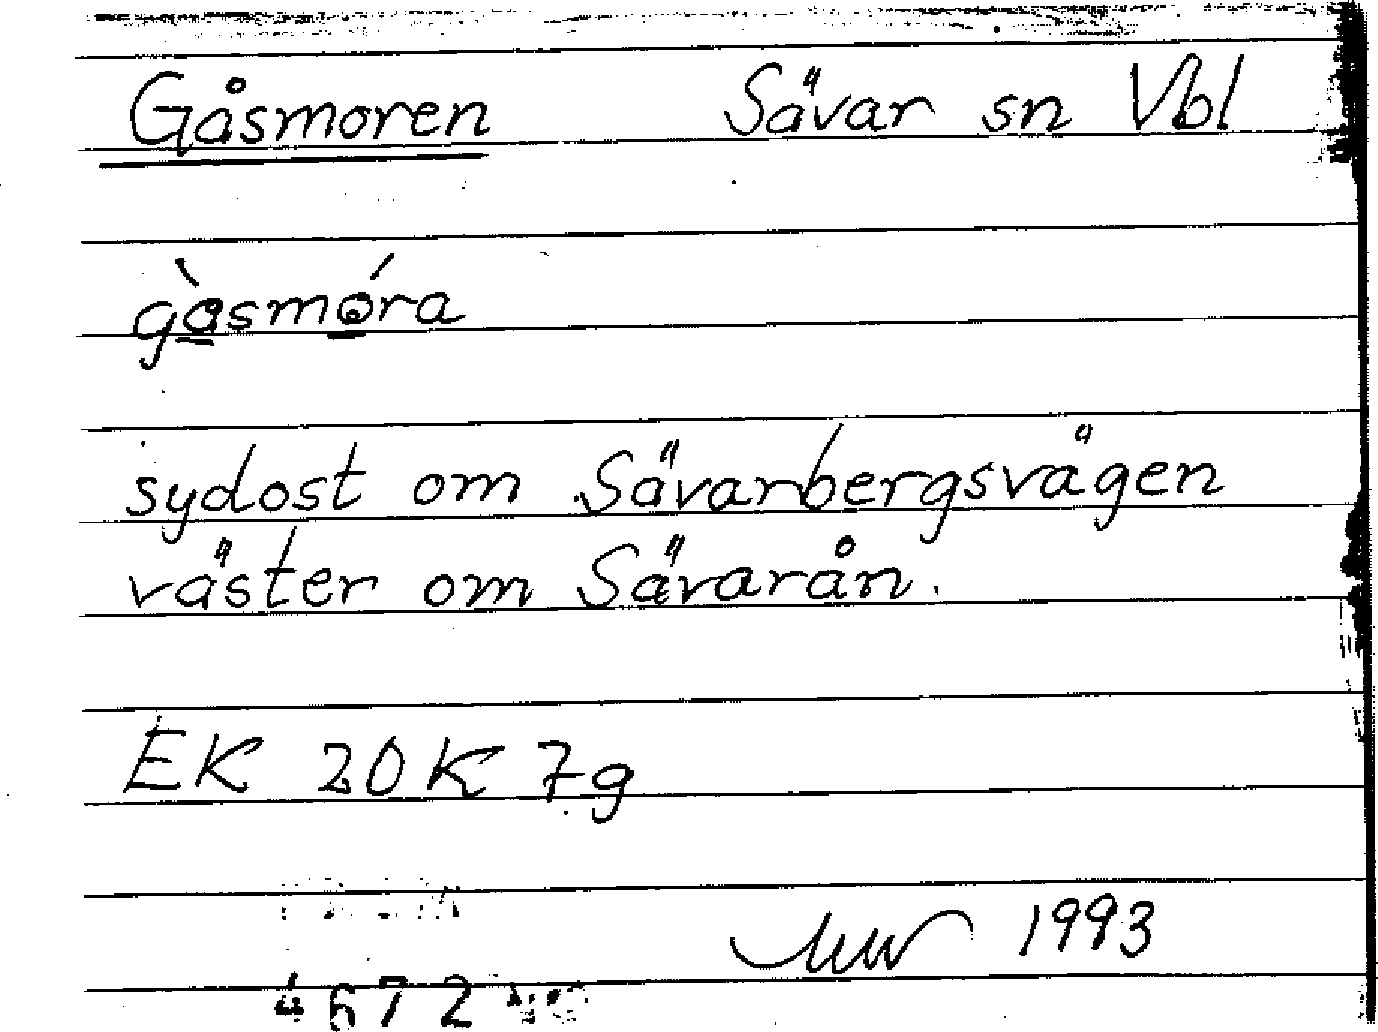 Gåsmoren Sävar sn Vbl
gàsmóra
sydost om Sävarbergsvägen
väster om Sävarån.
EK 20K 7g
1993
4672